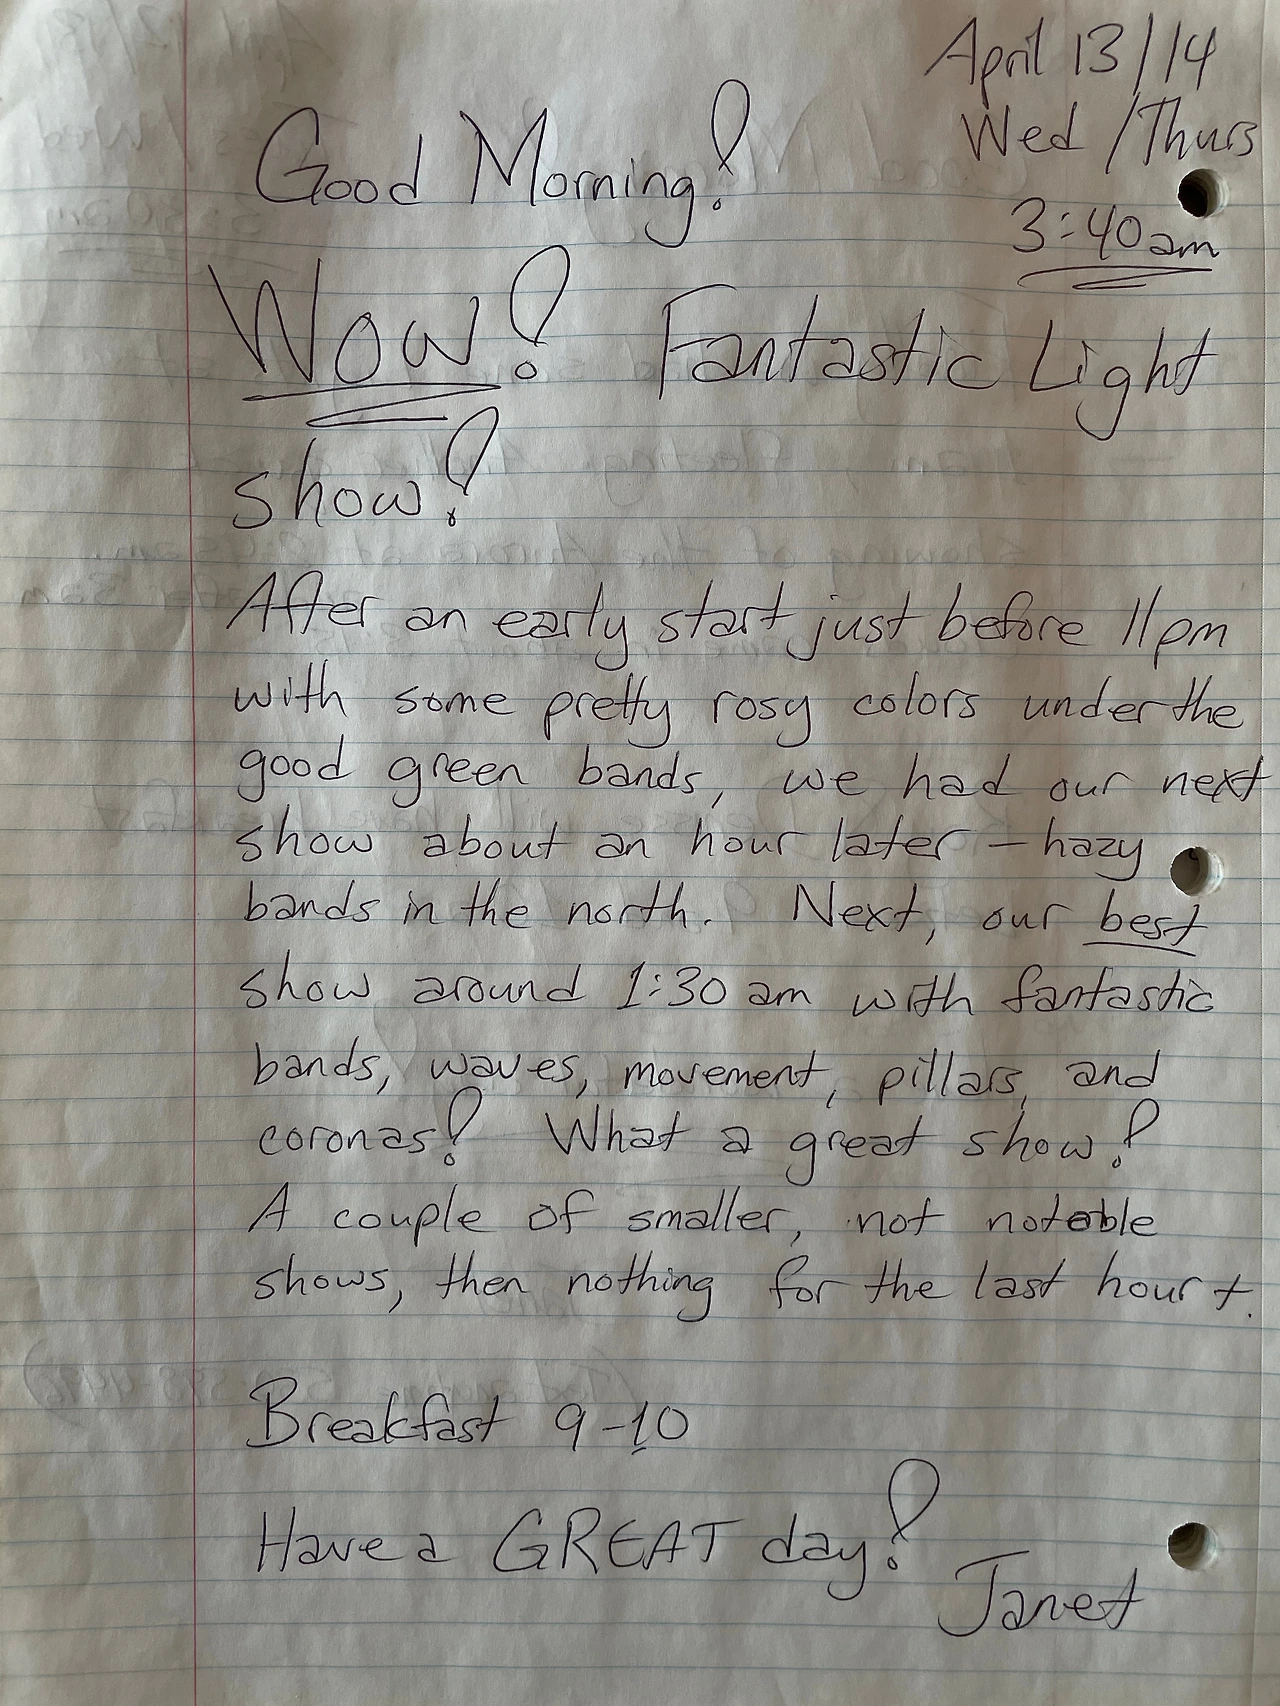 April 13/14
Wed / Thurs
Good Morning!
3:40am
Wow! Fantastic Light
show!
After an early start just before 11pm
with some pretty rosy colors under the
good green bands, we had our next
show about an hour later - hazy
bands in the north. Next, our best
show around 1:30 am with fantastic
bands, waves, movement, pillars, and
coronas! What a great show!
A couple of smaller, not notable
shows, then nothing for the last hour +.
Breakfast 9-10
Have a GREAT day!
Janet